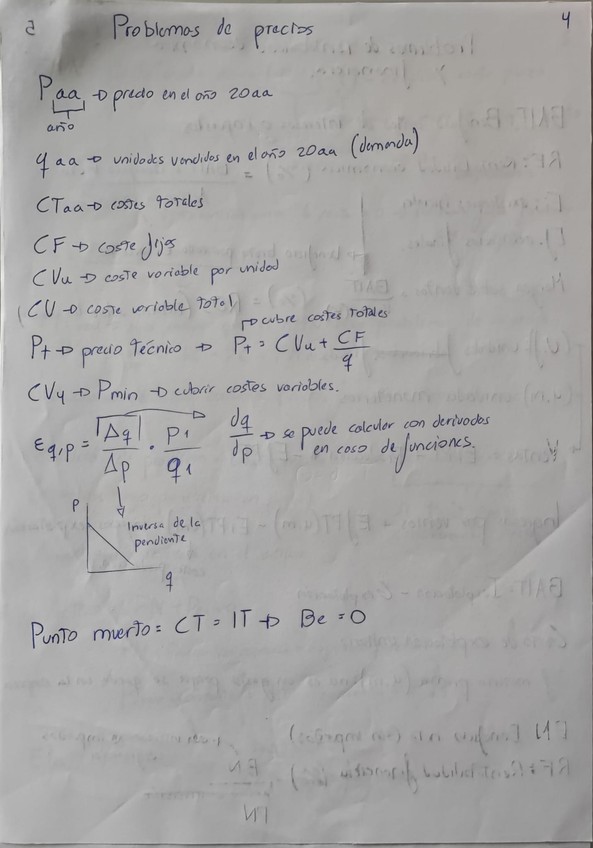 5 Problemas de precios 4
Paa → precio en el año 20aa
año
qaa → unidades vendidas en el año 20aa (demanda)
CTaa → costes totales
CF → coste fijos
CVu → coste variable por unidad
(CV → coste variable total)
→ cubre costes totales
Pt → precio técnico → Pt = CVu + CF/q
CVu → Pmin → cubrir costes variables.
εq,p = |Δq/Δp · P1/q1 dq/dp → se puede calcular con derivadas
en caso de funciones.
Inversa de la
pendiente
P
q
Punto muerto = CT = IT → Be = 0